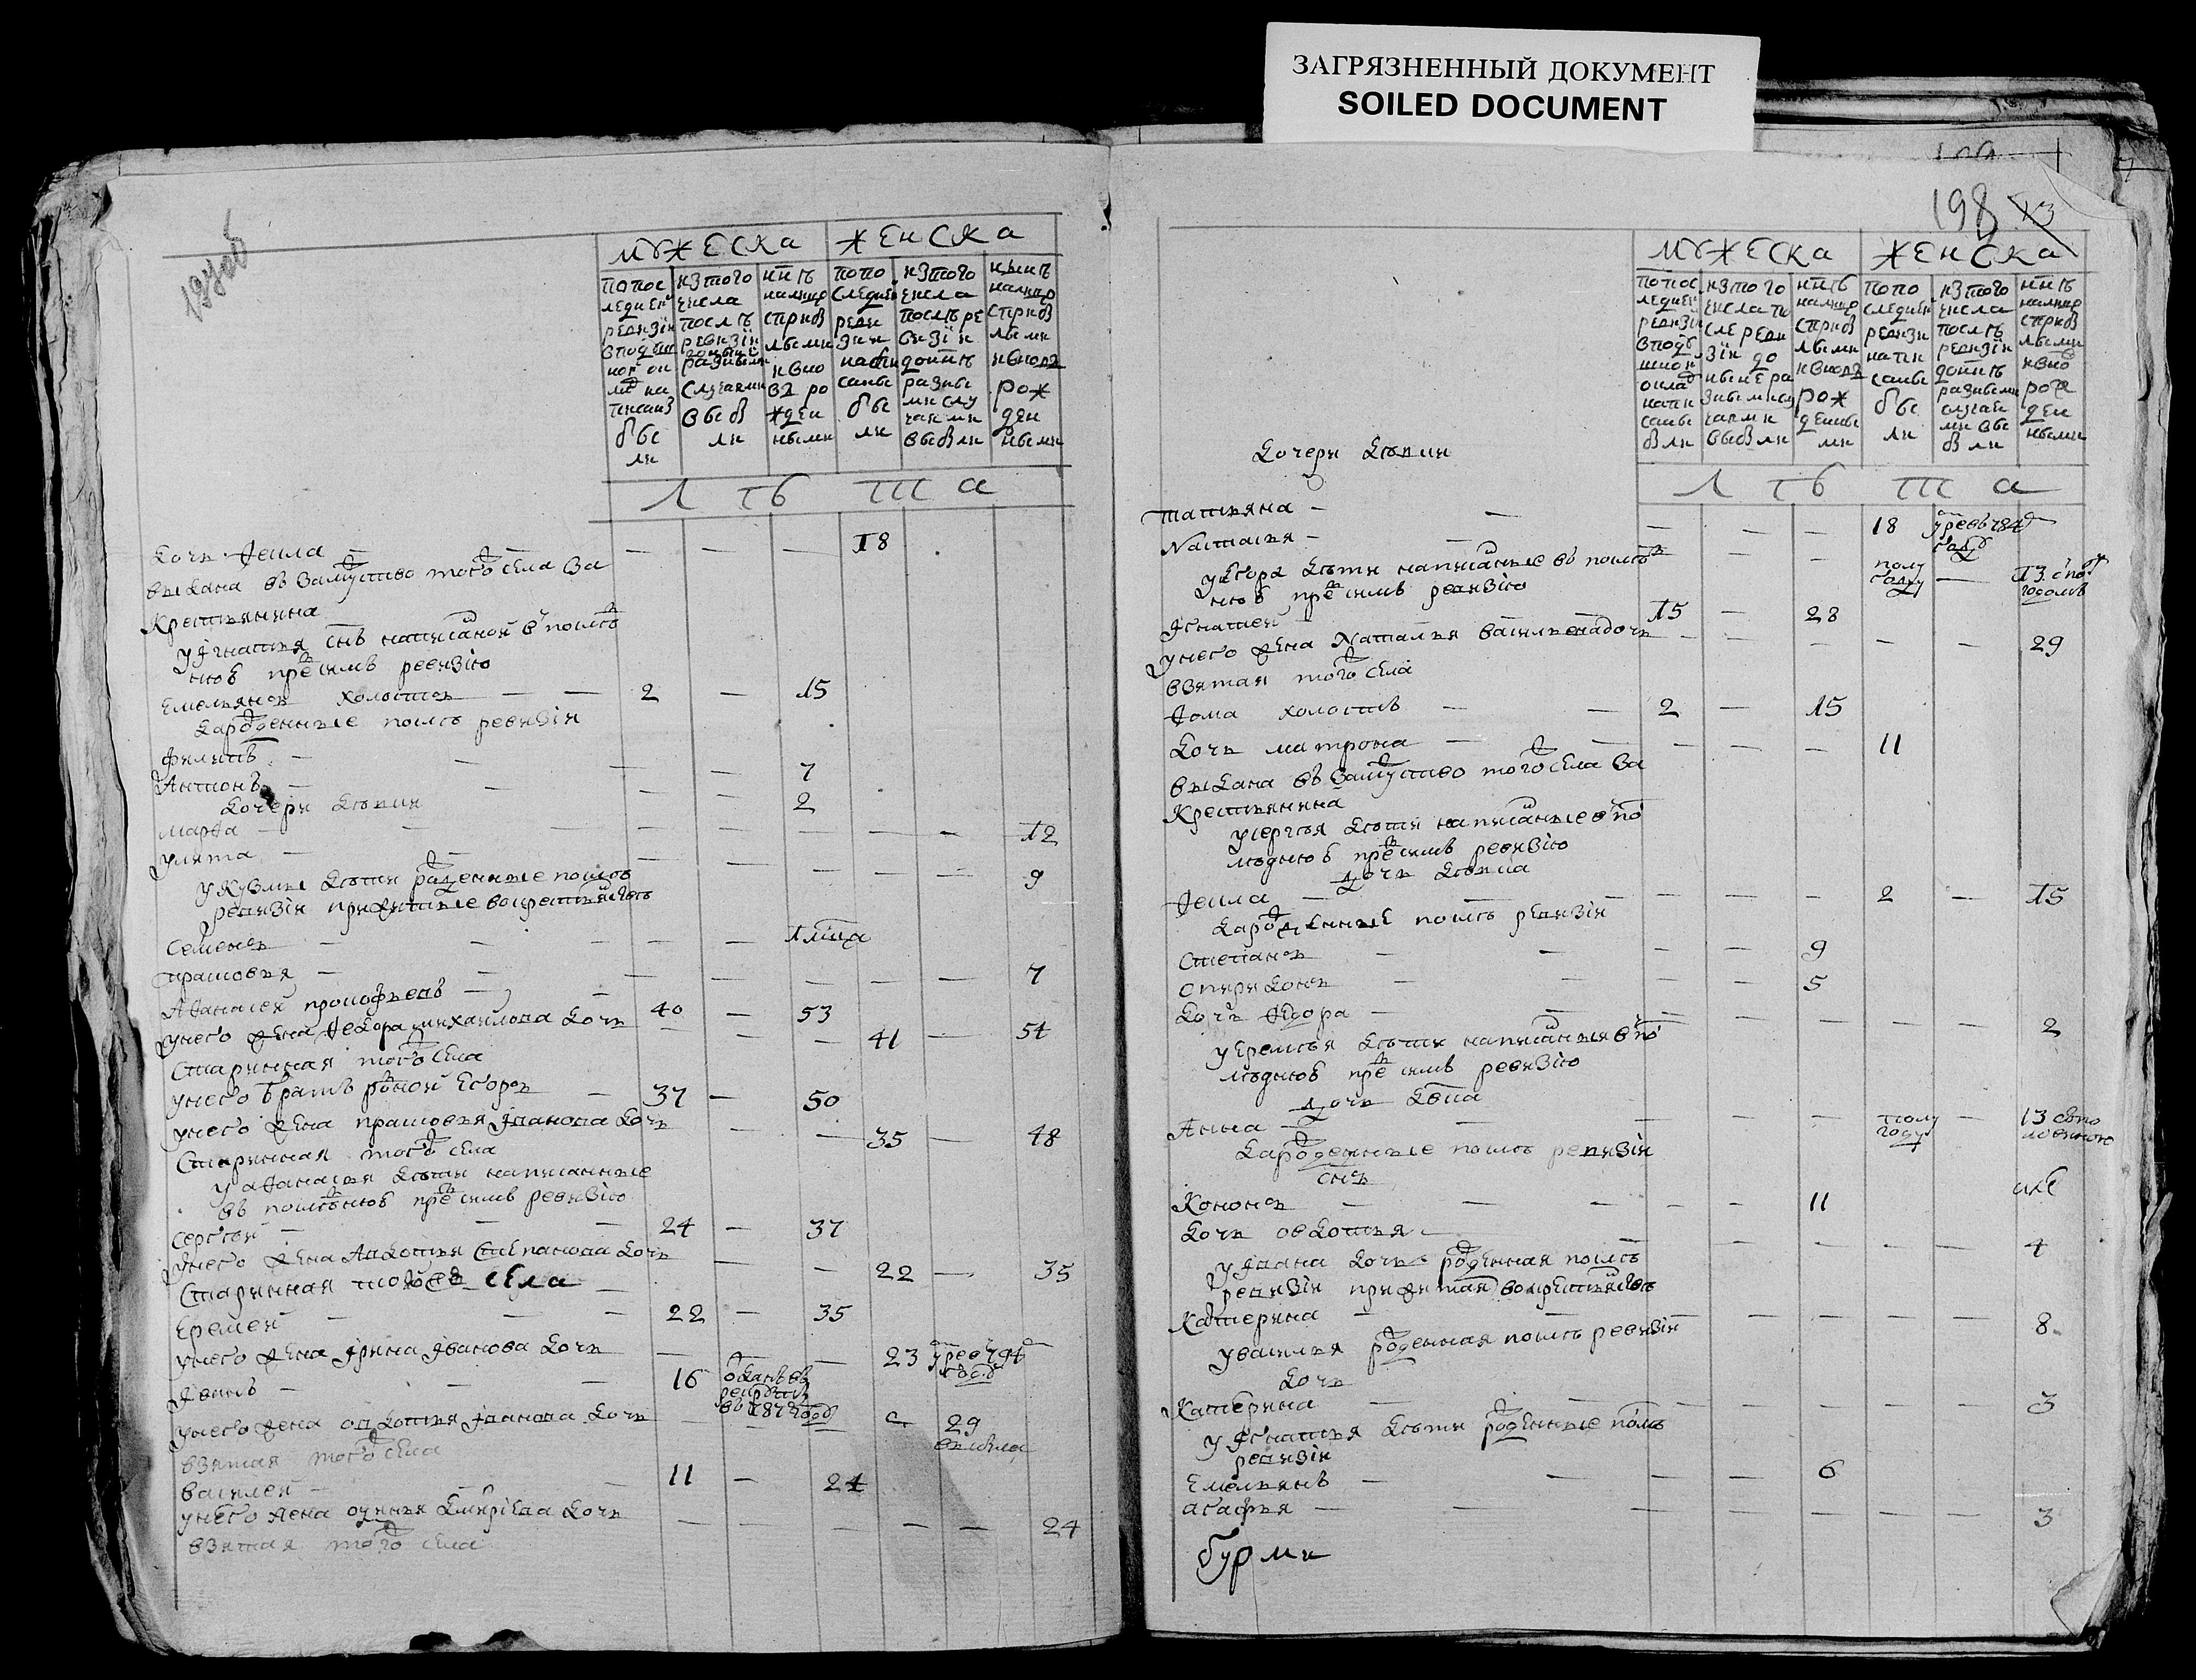 ЗАГРЯЗНЕННЫЙ ДОКУМЕНТ
SOILED DOCUMENT
мужеска женска
по последней ревизіи в подушной оклад написанъ были
изтого числа после ревизіи разными случаями выбыли
ныне налицо с прибылыми и вновь рожденными
по последней ревизи написаны были
изтого числа после ревизіи до ныне разными случаями выбыли
ныне налицо с прибылыми и вновь рожденными
лѣта
дочь Ѳекла — — — — 18
выдана въ замужство того села за
крестьянина
у Игнатья снъ написаной в послед
нюю пред симъ ревизію
Емельянъ холостъ — — 2 — 15
да рожденные после ревизіи
Филипъ — — — — 7
Антонъ — — — — 2
дочери девки
марѳа — — — — — — — 12
улита — — — — — — — 9
у Кузмы дети рожденные после
ревизіи прижитые во крестьянстве
Семенъ — — — — 1 мца
прасковья — — — — — — — 7
Аѳанасей прокофьевъ — — 40 — 53
у него жена Ѳедора михаилова дочь — — — 41 — 54
старинная того села
у него братъ родной Егоръ — 37 — 50
у него жена прасковья Іванова дочь — — — 35 — 48
старинная того села
у аѳанасья дети написанные
въ последнюю пред симъ ревизію
сергей — — — 24 — 37
у него жена Авдотья Степанова дочь — — — 22 — 35
старинная того ж села
Еремей — — — 22 — 35
у него жена Ірина Іванова дочь — — 23
Іванъ — — — 16 отданъ въ рекруты
у него жена овдотья Іванова дочь — — 29 выбыла
взятая того села
василей — — 11 — 24
у него жена Дмитріева дочь — — — — — 24
взятая того села
198
мужеска женска
по последней ревизіи в подушной оклад написаны были
изтого числа после ревизіи до ныне разными случаями выбыли
нынѣ налицо с прибылыми и вновь рожденными
по последней ревизи написаны были
изтого числа послѣ ревизіи до нынѣ разными случаями выбыли
нынѣ налицо с прибылыми и вновь рожденными
дочери девки
лѣта
татьяна — — — — — 18
Наталья — — — — — полу году — 13 с по годомъ
у Егора дети написанные въ послед
нюю пред симъ ревизію
Игнатей 15 — 28
у него жена Наталья васильева дочь — — — — — 29
взятая того села
Ѳома холостъ — — 2 — 15
дочь матрона — — — — — 11
выдана въ замужство того села за
крестьянина
у сергея дети написанные в по
следнюю пред симъ ревизію
дочь девка
Ѳекла — — — — — 2 — 15
да рожденные после ревизіи
степанъ — — — — 9
спиридонъ — — — — 5
дочь Ѳедора — — — — — — 2
у Еремея дети написанныя в по
следнюю пред симъ ревизію
дочь девка
Анна — — — — — полу году — 13 с по ловиною
да рожденные после ревизіи
снъ
Кононъ — — — — — 11
дочь овдотья — — — — — 4
у Івана дочь рожденная после
ревизіи прижитая во крестьянстве
Катерина — — — — — — — 8
у василья рожденная после ревизіи
дочь
Катерина — — — — — — — 3
у Игнатья дети рожденные после
ревизіи
Емельянъ — — — — 6
агафья — — — — — — — 3
бурми